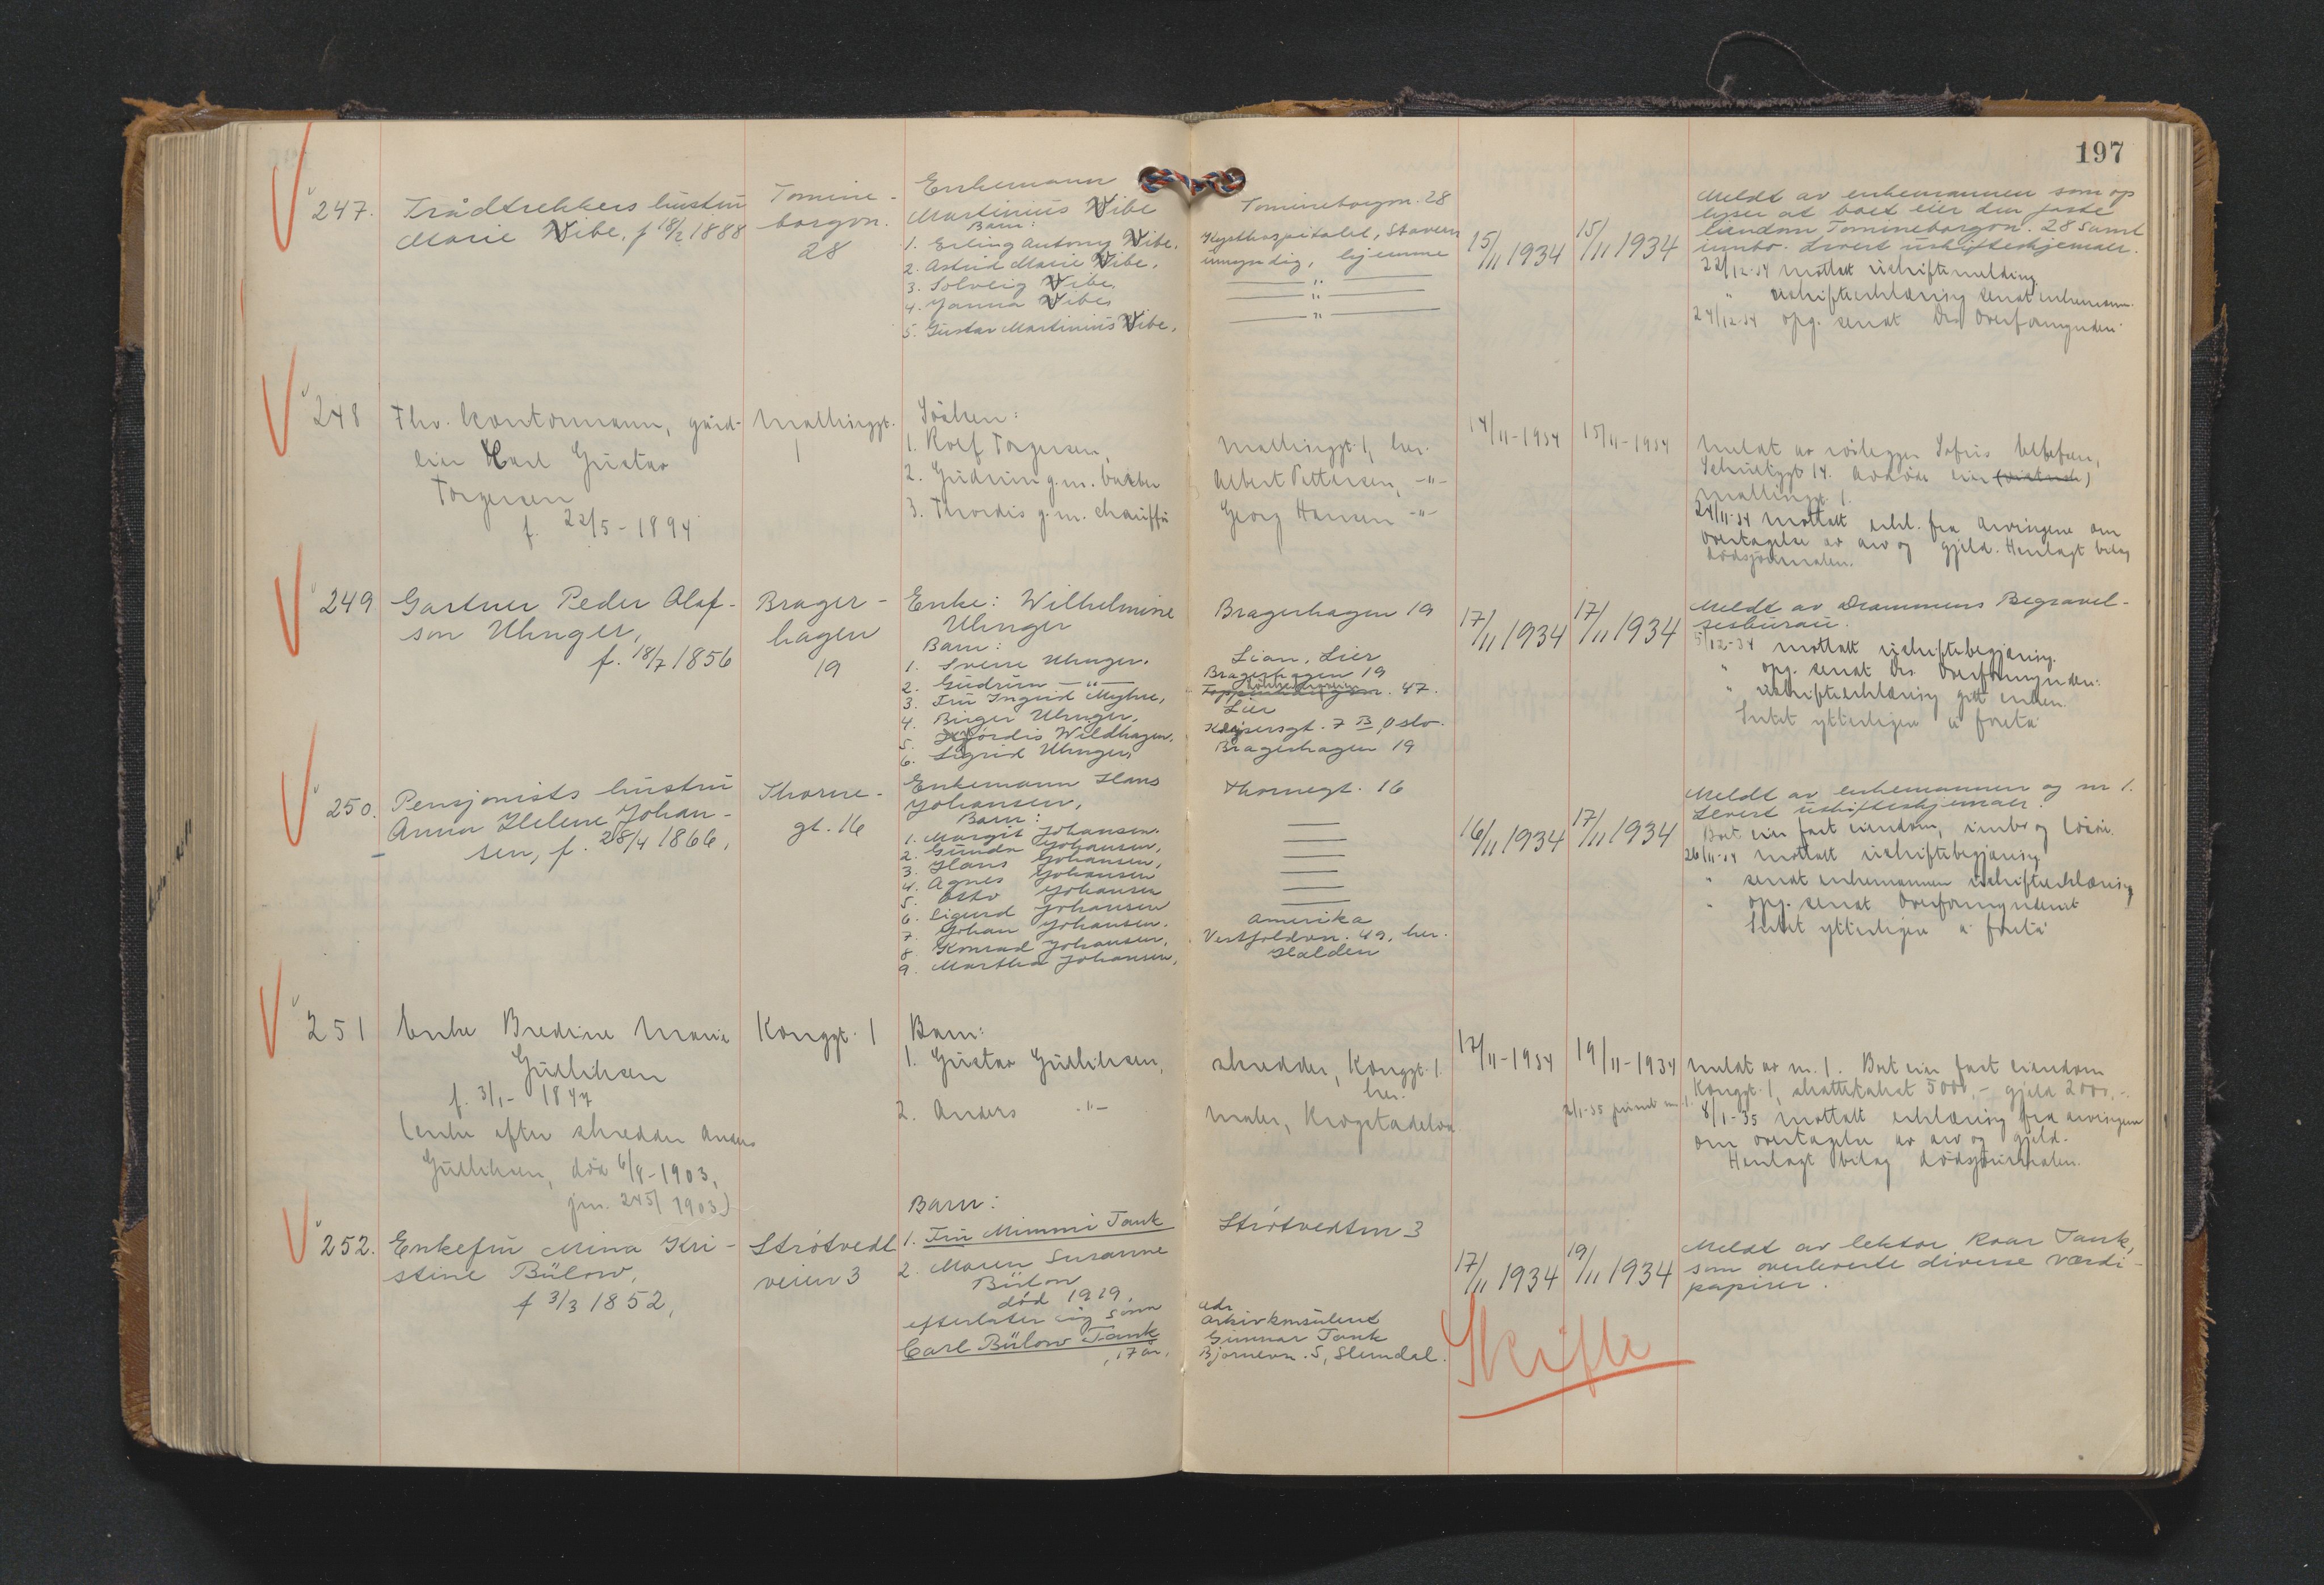 197
247.
Trådtrekkers hustru
Marie Vibe, f 18/2 1888
Tomine-
borgvn.
28
Enkemann
Martinius Vibe
Barn:
1. Erling Antony Vibe,
2. Astrid Marie Vibe,
3. Solveig Vibe,
4. Janna Vibe,
5. Gustav Martinius Vibe,
Tomineborgvn. 28
Kysthospitalet, Stavern
umyndig, hjemme
15/11 1934
15/11 1934
Meldt av enkemannen som op
lyser at boet eier den faste
eiendom Tomineborgvn. 28 samt
innbo. Levert uskifteskjemaer.
22/12-34 mottatt uskiftemelding.
" uskifteerklæring sendt enkemann.
24/12-34 opg. sendt Drs Overformynderi
248
Fhv. kontormann, gård-
eier Karl Gustav
Torgersen
f. 22/5-1894
Mallinggt.
1
Søsken:
1. Rolf Torgersen,
2. Gudrun g.m. barber
3. Thordis g.m. chauffør
Mallinggt 1, her.
Albert Pettersen, -"-
Georg Hansen -"-
14/11-1934
15/11-1934
Meldt av rørlegger
14. Avdøde eier
Mallinggt 1.
24/11-34 mottatt erkl. fra arvingene om
overtagelse av arv og gjeld. Henlagt bilag
dødsjournalen.
249
Gartner Peder Olaf-
son Uhnger,
f. 18/7 1856
Brager-
hagen
19
Enke: Wilhelmine
Uhnger
Barn:
1. Sverre Uhnger.
2. Gudrun -"-
3. Fru Ingrid Myhre,
4. Birger Uhnger,
5. Hjørdis Wildhagen,
6. Sigrid Uhnger,
Bragerhagen 19
Lian, Lier
Bragerhagen 19
47.
Lier
Keysersgt. 7 B, Oslo.
Bragerhagen 19
17/11 1934
17/11 1934
Meldt av Drammens Begravel-
sesbureau.
5/12-34 mottatt uskiftebegjæring.
" opg. sendt Drs. Overformynderi.
" uskifteerklæring gitt enken.
Intet ytterligere å foreta
250.
Pensjonists hustru
Anna Helene Johan-
sen, f. 28/4 1866,
Thorne-
gt. 16
Enkemann Hans
Johansen,
Barn:
1. Margit Johansen.
2. Gunda Johansen,
3. Hans Johansen,
4. Agnes Johansen
5. Otto Johansen
6. Sigurd Johansen
7. Johan Johansen.
8. Konrad Johansen,
9. Martha Johansen,
Thornegt. 16
Amerika
Vestfoldvn. 49, her.
Halden
16/11 1934
17/11 1934
Meldt av enkemannen og nr 1.
Levert uskifteskjemaer.
Boet eier fast eiendom, innbo og løsøre.
26/11-34 mottatt uskiftebegjæring
" sendt enkemannen uskifteerklæring
" opg. sendt Overformynderiet
Intet ytterligere å foreta
251
Enke Bredine Marie
Gulliksen
f. 3/1- 1847
(enke efter skredder Anders
Gulliksen, død 6/9-1903,
jnr. 245/1903)
Konggt. 1
Barn:
1. Gustav Gulliksen,
2. Anders -"-
skredder, Konggt. 1.
her.
maler, Krogstadelva
17/11-1934
19/11-1934
2/1-35 purret nr 1.
Meldt av nr. 1. Boet eier fast eiendom
Konggt. 1, skattetakst 5000,- gjeld 2000,-.
8/1-35 mottatt erklæring fra arvingene
om overtagelse av arv og gjeld.
Henlagt bilag dødsjournalen.
252.
Enkefru Mina Kri-
stine Bülow,
f 3/3 1852,
Strøtvedt
veien 3
Barn:
1. Fru Mimmi Tank
2. Maren Susanne
Bülow
død 1919,
efterlater sig sønn
Carl Bülow Tank
, 17 år.
Strøtvedtvn 3
adr
Arkivkonsulent
Gunnar Tank
Bjørnevn. 5, Slemdal.
17/11 1934
19/11 1934
Meldt av lektor Roar Tank,
som overleverte diverse værdi-
papirer.
Skifte